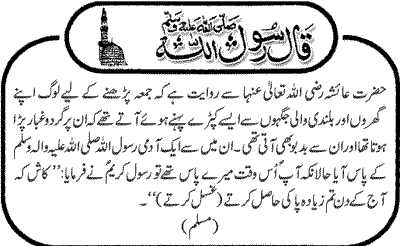 قال رسول اللہ صلی اللہ علیہ وسلم
حضرت عائشہ رضی اللہ تعالیٰ عنہا سے روایت ہے کہ جمعہ پڑھنے کے لیے لوگ اپنے
گھروں اور بلندی والی جگہوں سے ایسے کپڑے پہنے ہوئے آتے تھے کہ ان پر گرد و غبار پڑا
ہوتا تھا اور ان سے بدبو بھی آتی تھی۔ ان میں سے ایک آدمی رسول اللہ صلی اللہ علیہ والہ وسلم
کے پاس آیا حالانکہ آپؐ اُس وقت میرے پاس تھے تو رسول کریمؐ نے فرمایا: ’’کاش کہ
آج کے دن تم زیادہ پاکی حاصل کرتے (غسل کرتے)‘‘۔
(مسلم)